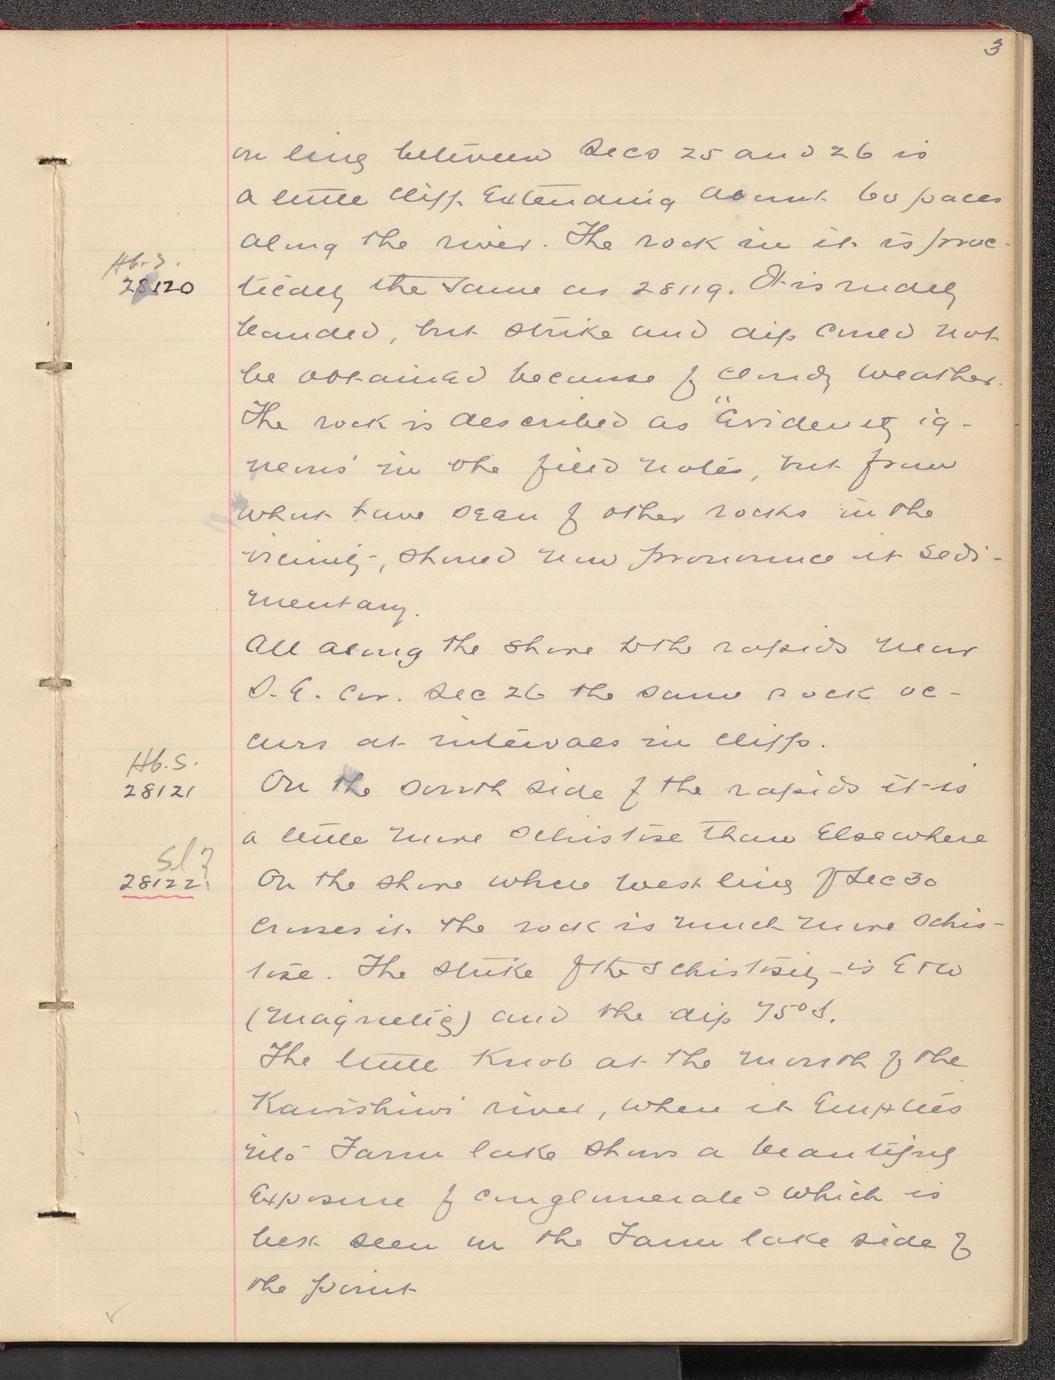 3
on line between Secs 25 and 26 is
a little cliff extending about 60 paces
along the river. The rock in it is prac-
Hb. S.
28120
tically the same as 28119. It is rudely
banded, but strike and dip could not
be obtained because of cloudy weather.
The rock is described as "evidently ig-
neous" in the field notes, but from
what have seen of other rocks in the
vicinity, should now pronounce it sedi-
mentary.
All along the shore to the rapids near
S. E. Cor. Sec 26 the same rock oc-
curs at intervals in cliffs.
Hb. S.
28121
On the south side of the rapids it is
a little more schistose than elsewhere
Sl?
28122
On the shore where west line of Sec 30
crosses it the rock is much more schis-
tose. The strike of the schistosity is E + W
(magnetic) and the dip 75° S.
The little knob at the mouth of the
Kawishiwi river, where it empties
into Farm lake shows a beautiful
exposure of conglomerate which is
best seen on the Farm lake side of
the point